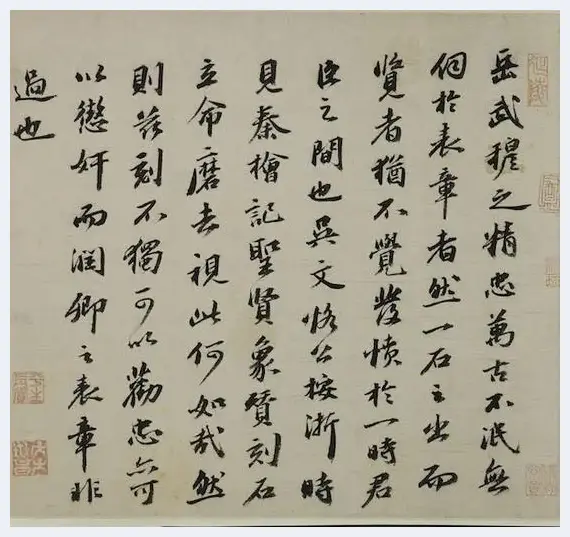 岳武穆之精忠萬古不泯無
俟於表章者然一石之出而
覽者猶不覺發憤於一時君
臣之間也吳文恪公按浙時
見秦檜記聖賢象贊刻石
立命磨去視此何如哉然
則茲刻不獨可以勸忠亦可
以懲奸而潤卿之表章非
過也